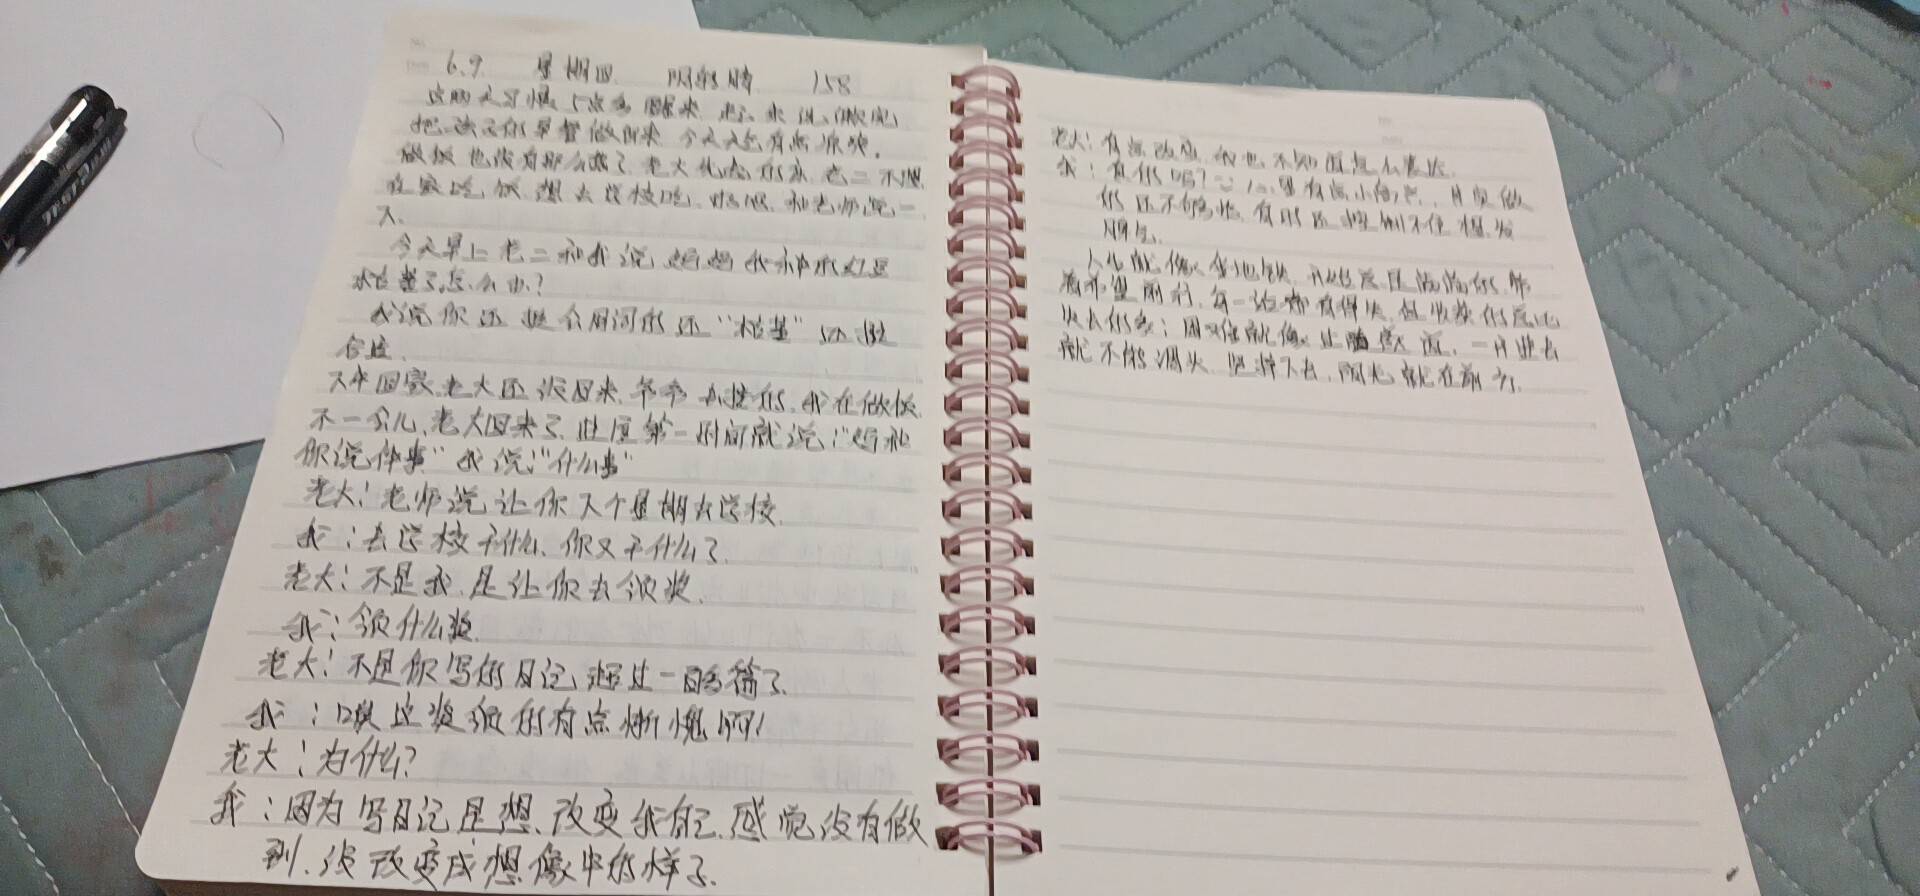 6.9 星期四 阴转晴 158
这两天习惯5点多醒来, 起来 做完
把 早餐做出来, 今天天气有点凉爽,
做饭也没有那么热了, 老大 老二不想
在家吃饭, 想去学校吃, 和老师说一
下.
今天早上老二和我说妈妈我
怎么办?
我说你还 会用词的还“ ”
合适.
下午回家老大还没回来, 爷爷去接的, 我在做饭,
不一会儿, 老大回来了, 进屋第一时间就说:“妈和
你说件事” 我说:“什么事”
老大: 老师说让你下个星期去学校.
我: 去学校干什么, 你又干什么了.
老大: 不是我, 是让你去领奖.
我: 领什么奖.
老大: 不是你写的日记超过一百多篇了.
我: 噢这奖领的有点惭愧啊!
老大: 为什么?
我: 因为写日记是想改变我自己, 感觉没有做
到, 没改变成想像中的样子.
老大: 有点改变, 我也不知道怎么表达.
我: 有的吗? 心里有点小 , 其实做
的还不够好, 有时还控制不住想发
脾气.
人生就像坐地铁, 开始 满满的, 带
着希望前行, 每一站都有得失, 但收获的 比
失去的多; 困难就像过隧道, 一开进去
就不能调头, 坚持下去, 阳光就在前方.